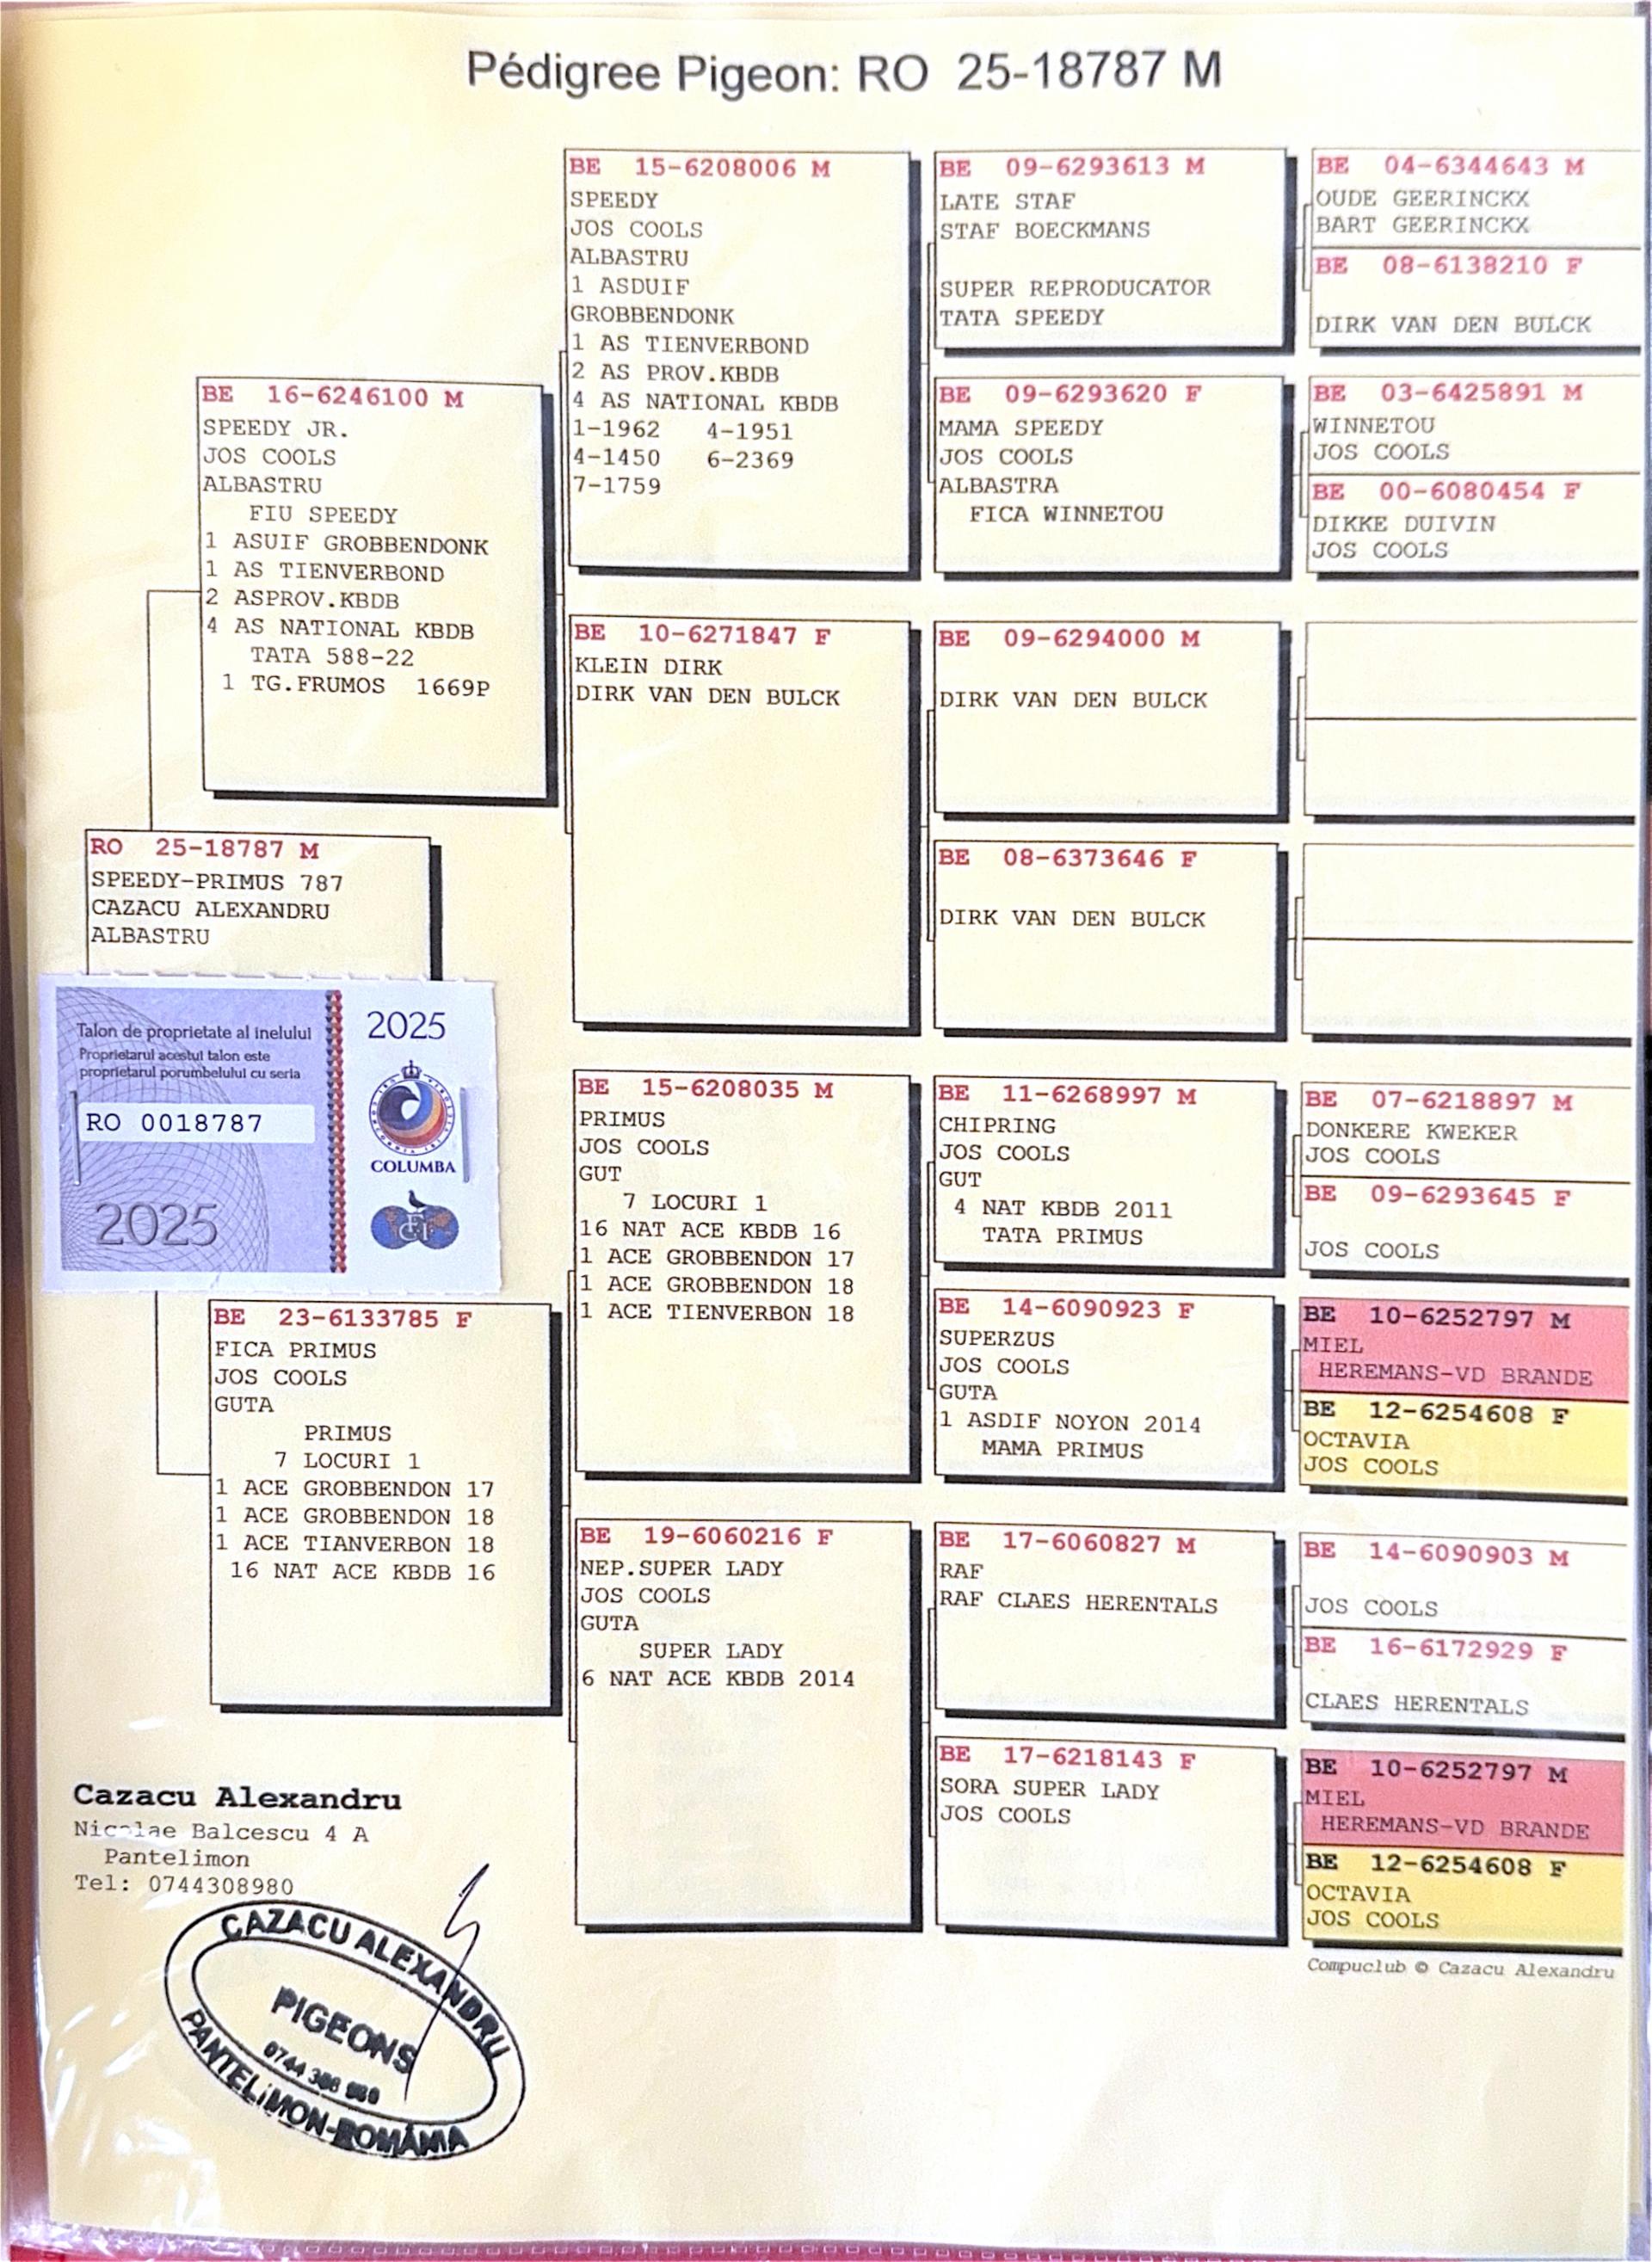 Pédigree Pigeon: RO 25-18787 M
BE 16-6246100 M
SPEEDY JR.
JOS COOLS
ALBASTRU
FIU SPEEDY
1 ASUIF GROBBENDONK
1 AS TIENVERBOND
2 ASPROV.KBDB
4 AS NATIONAL KBDB
TATA 588-22
1 TG.FRUMOS 1669P
RO 25-18787 M
SPEEDY-PRIMUS 787
CAZACU ALEXANDRU
ALBASTRU
Talon de proprietate al inelului
Proprietarul acestui talon este
proprietarul porumbelului cu seria
RO 0018787
2025
2025
COLUMBA
FCI
BE 23-6133785 F
FICA PRIMUS
JOS COOLS
GUTA
PRIMUS
7 LOCURI 1
1 ACE GROBBENDON 17
1 ACE GROBBENDON 18
1 ACE TIANVERBON 18
16 NAT ACE KBDB 16
BE 15-6208006 M
SPEEDY
JOS COOLS
ALBASTRU
1 ASDUIF
GROBBENDONK
1 AS TIENVERBOND
2 AS PROV.KBDB
4 AS NATIONAL KBDB
1-1962 4-1951
4-1450 6-2369
7-1759
BE 10-6271847 F
KLEIN DIRK
DIRK VAN DEN BULCK
BE 15-6208035 M
PRIMUS
JOS COOLS
GUT
7 LOCURI 1
16 NAT ACE KBDB 16
1 ACE GROBBENDON 17
1 ACE GROBBENDON 18
1 ACE TIENVERBON 18
BE 19-6060216 F
NEP.SUPER LADY
JOS COOLS
GUTA
SUPER LADY
6 NAT ACE KBDB 2014
BE 09-6293613 M
LATE STAF
STAF BOECKMANS
SUPER REPRODUCATOR
TATA SPEEDY
BE 09-6293620 F
MAMA SPEEDY
JOS COOLS
ALBASTRA
FICA WINNETOU
BE 09-6294000 M
DIRK VAN DEN BULCK
BE 08-6373646 F
DIRK VAN DEN BULCK
BE 11-6268997 M
CHIPRING
JOS COOLS
GUT
4 NAT KBDB 2011
TATA PRIMUS
BE 14-6090923 F
SUPERZUS
JOS COOLS
GUTA
1 ASDIF NOYON 2014
MAMA PRIMUS
BE 17-6060827 M
RAF
RAF CLAES HERENTALS
BE 17-6218143 F
SORA SUPER LADY
JOS COOLS
BE 04-6344643 M
OUDE GEERINCKX
BART GEERINCKX
BE 08-6138210 F
DIRK VAN DEN BULCK
BE 03-6425891 M
WINNETOU
JOS COOLS
BE 00-6080454 F
DIKKE DUIVIN
JOS COOLS
BE 07-6218897 M
DONKERE KWEKER
JOS COOLS
BE 09-6293645 F
JOS COOLS
BE 10-6252797 M
MIEL
HEREMANS-VD BRANDE
BE 12-6254608 F
OCTAVIA
JOS COOLS
BE 14-6090903 M
JOS COOLS
BE 16-6172929 F
CLAES HERENTALS
BE 10-6252797 M
MIEL
HEREMANS-VD BRANDE
BE 12-6254608 F
OCTAVIA
JOS COOLS
Compuclub © Cazacu Alexandru
Cazacu Alexandru
Nicolae Balcescu 4 A
Pantelimon
Tel: 0744308980
CAZACU ALEXANDRU
PIGEONS
0744
PANTELiMON-ROMÂNIA